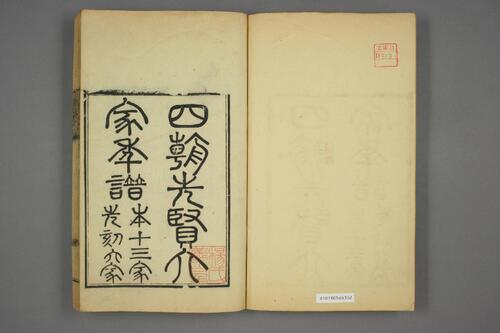 四朝先賢六
家年譜
本十三家
先刻六家